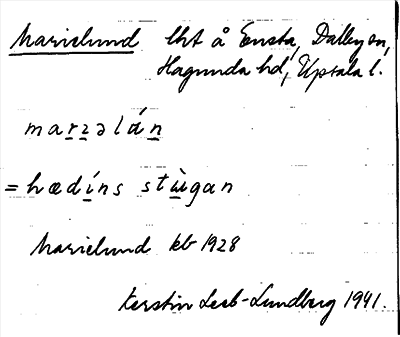 Marielund lht å Ensta, Dalby sn,
Hagunda hd, Uppsala l.
marıəlán
= hædíns stùgan
Marielund kb 1928
Kerstin Leeb-Lundberg 1941.